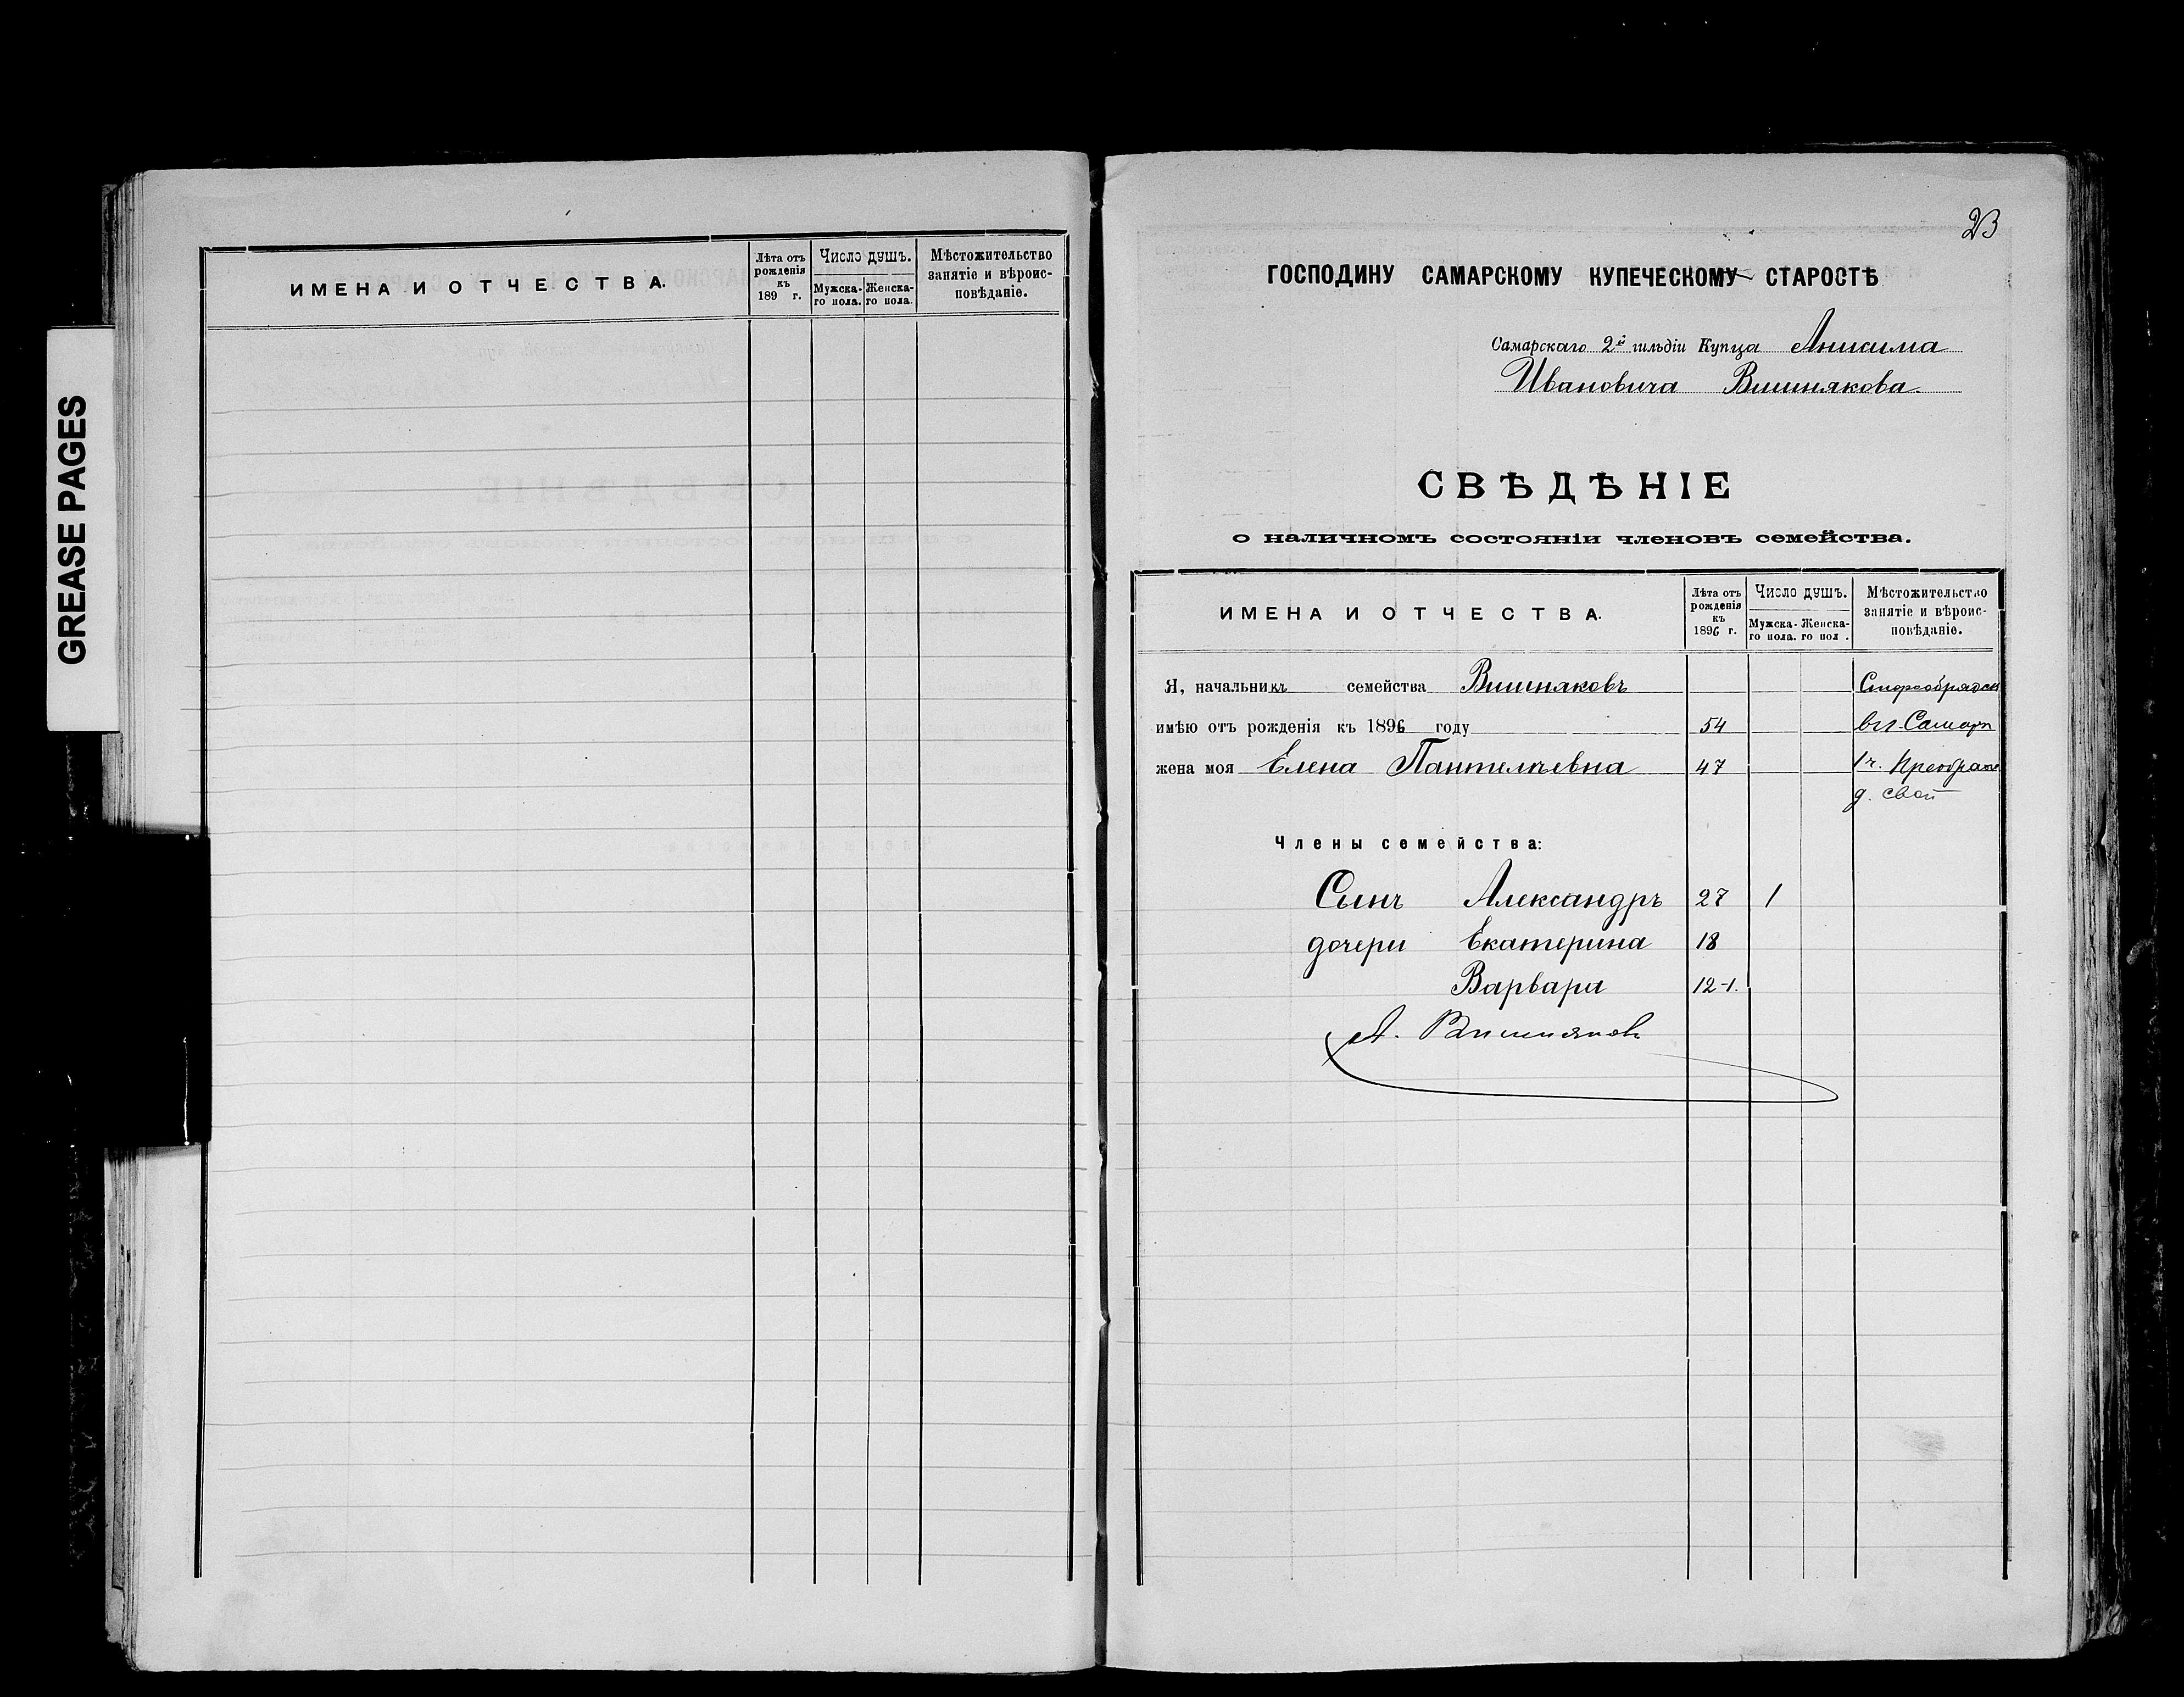 GREASE PAGES
ИМЕНА И ОТЧЕСТВА.
Лѣта отъ рожденія къ 189 г.
Число душъ.
Мужска-го пола.
Женска-го пола.
Мѣстожительство занятіе и вѣроис-повѣданіе.
23
ГОСПОДИНУ САМАРСКОМУ КУПЕЧЕСКОМУ СТАРОСТѢ
Самарскаго 2й гильдіи Купца Анисима
Ивановича Вишнякова.
СВѢДѢНІЕ
о наличномъ состояніи членовъ семейства.
ИМЕНА И ОТЧЕСТВА.
Лѣта отъ рожденія къ 1896 г.
Число душъ.
Мужска-го пола.
Женска-го пол .
Мѣстожительство занятіе и вѣроис-повѣданіе.
Я, начальникъ семейства Вишняковъ
имѣю отъ рожденія къ 1896 году 54 въ г. Самарѣ
жена моя Елена Пантелѣевна 47 1 ч. Преображ
д. свой
Члены семейства:
Сынъ Александръ 27 1
дочери Екатерина 18
Варвара 12-1.
А. Вишняковъ